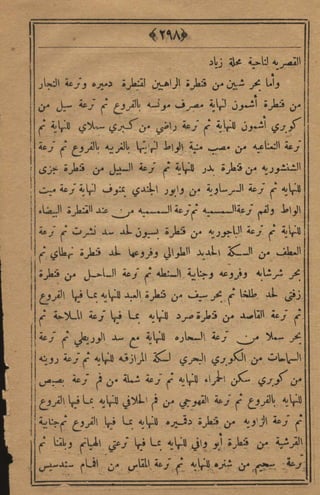 ﴿٢٩٨﴾
القصريه لناحية محلة زياد
وأما بحر شبين من قنطرة الراهبين لقنطرة دميره وترعة النجار
من قنطرة أشمون لنهاية مصرف مونسه بالفروع ثم ترعة سيل من
كوبرى أشمون للنهاية ثم ترعة راضى من كبرى سملاى للنهاية ثم
ترعة النعناعيه من مصب منية الواط لنهايتها بالغربيه بالفروع ثم ترعة
الشنشوريه من قنطرة بدر للنهاية ثم ترعة السبيل من قنطرة بجزى
للنهايه ثم ترعة السرساوية من وابور الجندى بمنوف لنهاية ترعة ميت
الواط ولقم ترعة السمسميه ثم ترعة السمسميه من عند القنطرة البيضاء
للنهاية ثم ترعة الباجوريه من قنطرة بسيون لحد سد نشرت ثم ترعة
العطف من السكة الحديد الطوالى وفروعها لحد قنطرة نهطاى ثم
بحر شرشابه وفروعه وجنابية السنطه ثم ترعة الساحل من قنطرة
زفتى لحد طلخا ثم بحر سيف من قنطرة العبد للنهايه بما فيها الفروع
ثم ترعة القاصد من قنطرة صرد للنهايه بما فيها ترعة الملاحة ثم
بحر سملا من ترعة السحاره للنهاية مع سد الوربعلى ثم ترعة
السماحات من الكوبرى البحرى لسكة المرازقه للنهايه ثم ترعة روينه
من كوبرى سكن الحمراء للنهايه ثم ترعة شملة من فم ترعة بصيص
للنهايه بالفروع ثم ترعة القهوجى من فم الخلافى للنهايه بما فيها الفروع
ثم ترعة الزاويه من قنطرة دقميره للنهايه بما فيها الفروع ثم جنابية
القرشية من قنطرة أبو وافى للنهايه بما فيها ترعتى الهياتم وبلقنا ثم
ترعة سحيم من شنره للنهايه ثم ترعة المقاس من افمام سنديس